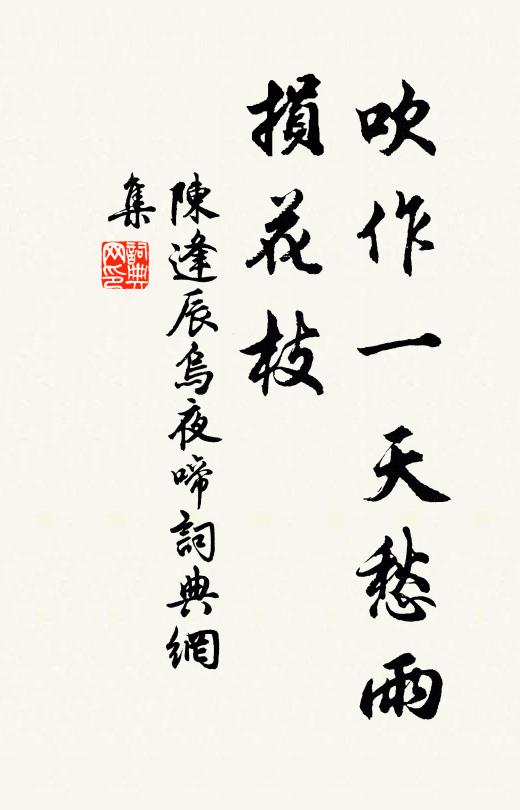 吹作一天愁雨
損花枝
陳逢辰烏夜啼詞典網
集
詞典
网印